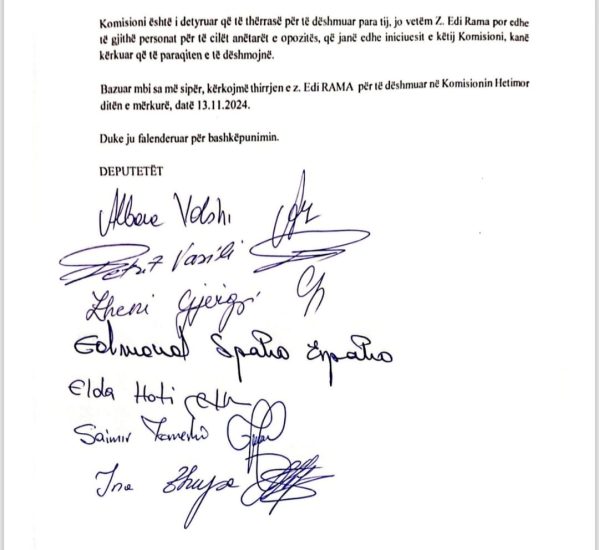 Komisioni është i detyruar që të thërrasë për të dëshmuar para tij, jo vetëm Z. Edi Rama por edhe
të gjithë personat për të cilët anëtarët e opozitës, që janë edhe iniciuesit e këtij Komisioni, kanë
kërkuar që të paraqiten e të dëshmojnë.
Bazuar mbi sa më sipër, kërkojmë thirrjen e z. Edi RAMA për të dëshmuar në Komisionin Hetimor
ditën e mërkurë, datë 13.11.2024.
Duke ju falenderuar për bashkëpunimin.
DEPUTETËT
Albana Vokshi
Petrit Vasili
Zheni Gjergji
Edmond Spaho Spaho
Elda Hoti
Saimir
Ina Zhupa